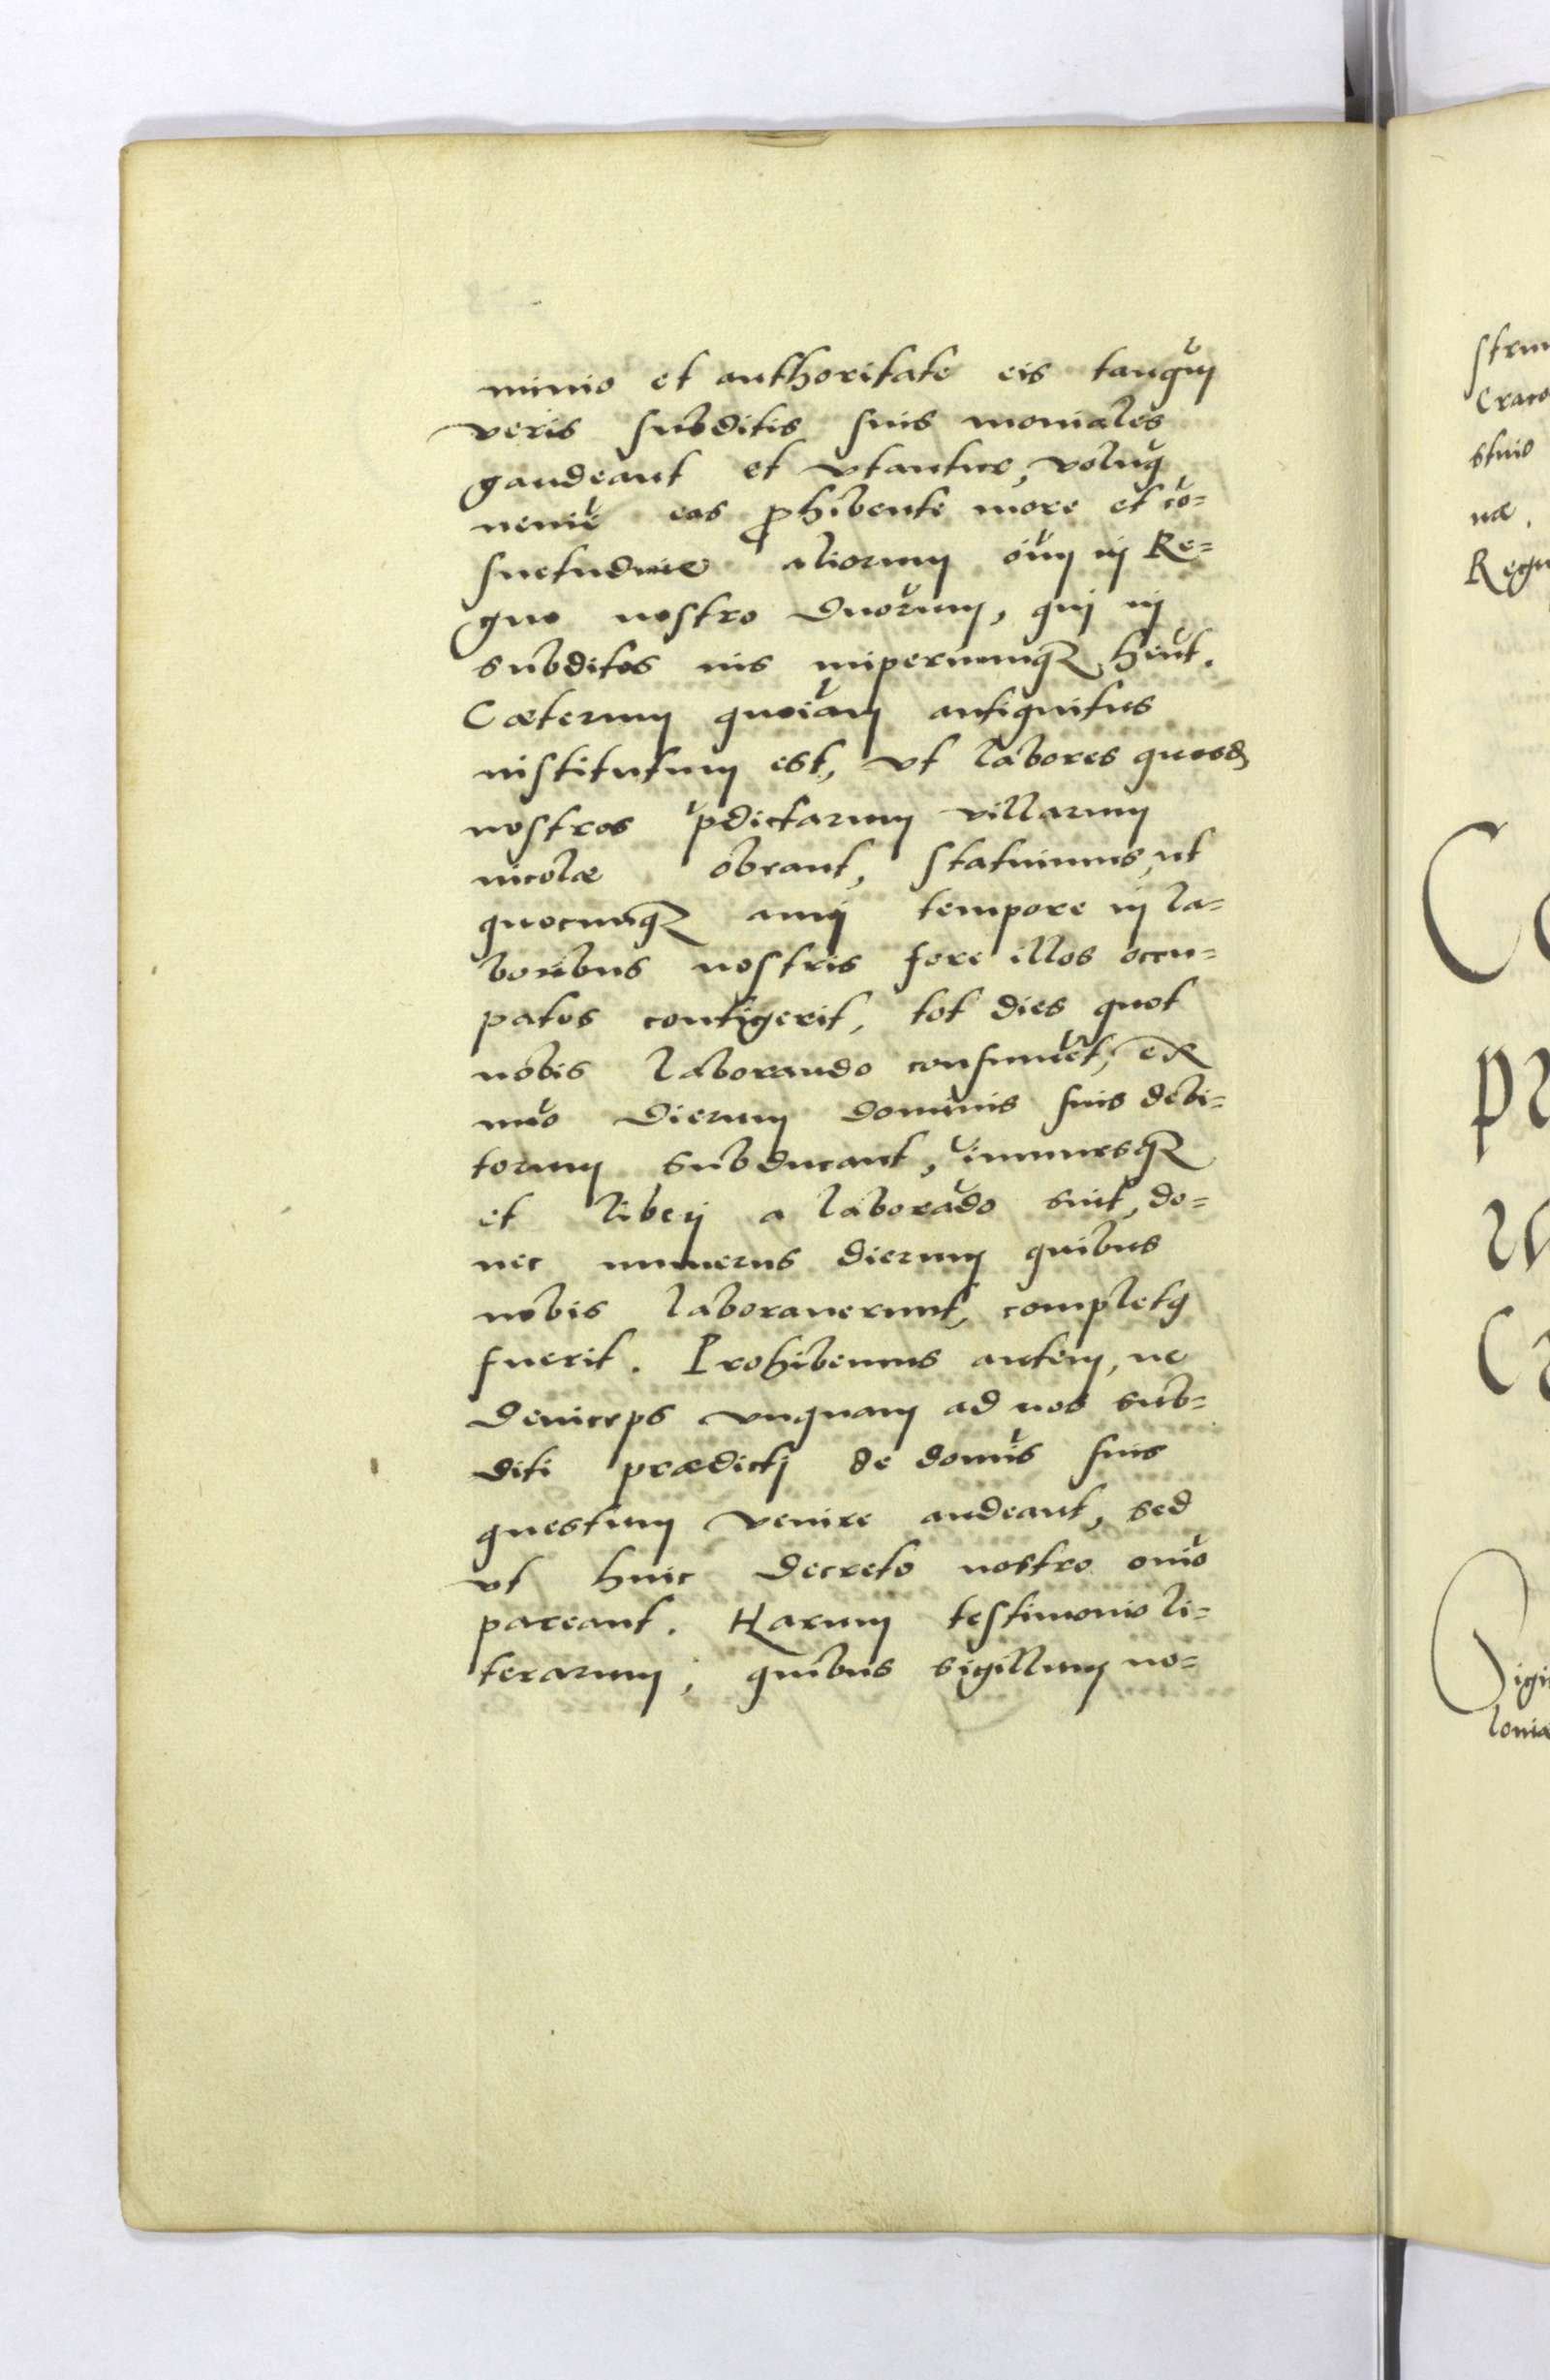 minio et authoritate eis tanqũm
veris subditis suis moniales
gaudeant et vtantur, volumus
nemine eas ꝓhibente more et cõ=
suetudine aliorum õium in Re=
gno nostro Dnorum, qui in
subditos ius imperiumq̃ hñt.
Cæterum quoniam antiquitus
institutum est, vt labores quosd̃
nostros p̃dictarum villarum
incolæ obeant, statuimus, ut
quocunq̃ anni tempore in la=
boribus nostris fore illos occu=
patos contigerit, tot dies quot
nobis laborando consumẽt, ex
nũo dierum dominis suis debi=
torum subducant, immunesq̃
et liberi a laborãdo sint, do=
nec numerus dierum quibus
nobis laborauerunt, completꝰ
fuerit. Prohibemus autem, ne
deinceps vnquam ad nos sub=
diti prædicti de dominis suis
questum venire audeant, sed
vt huic decreto nostro omĩo
pareant. Harum testimonio li=
terarum, quibus sigillum no=
strum
Craco
stuio
næ.
Regn
pr
Cr
Sigi
loniæ